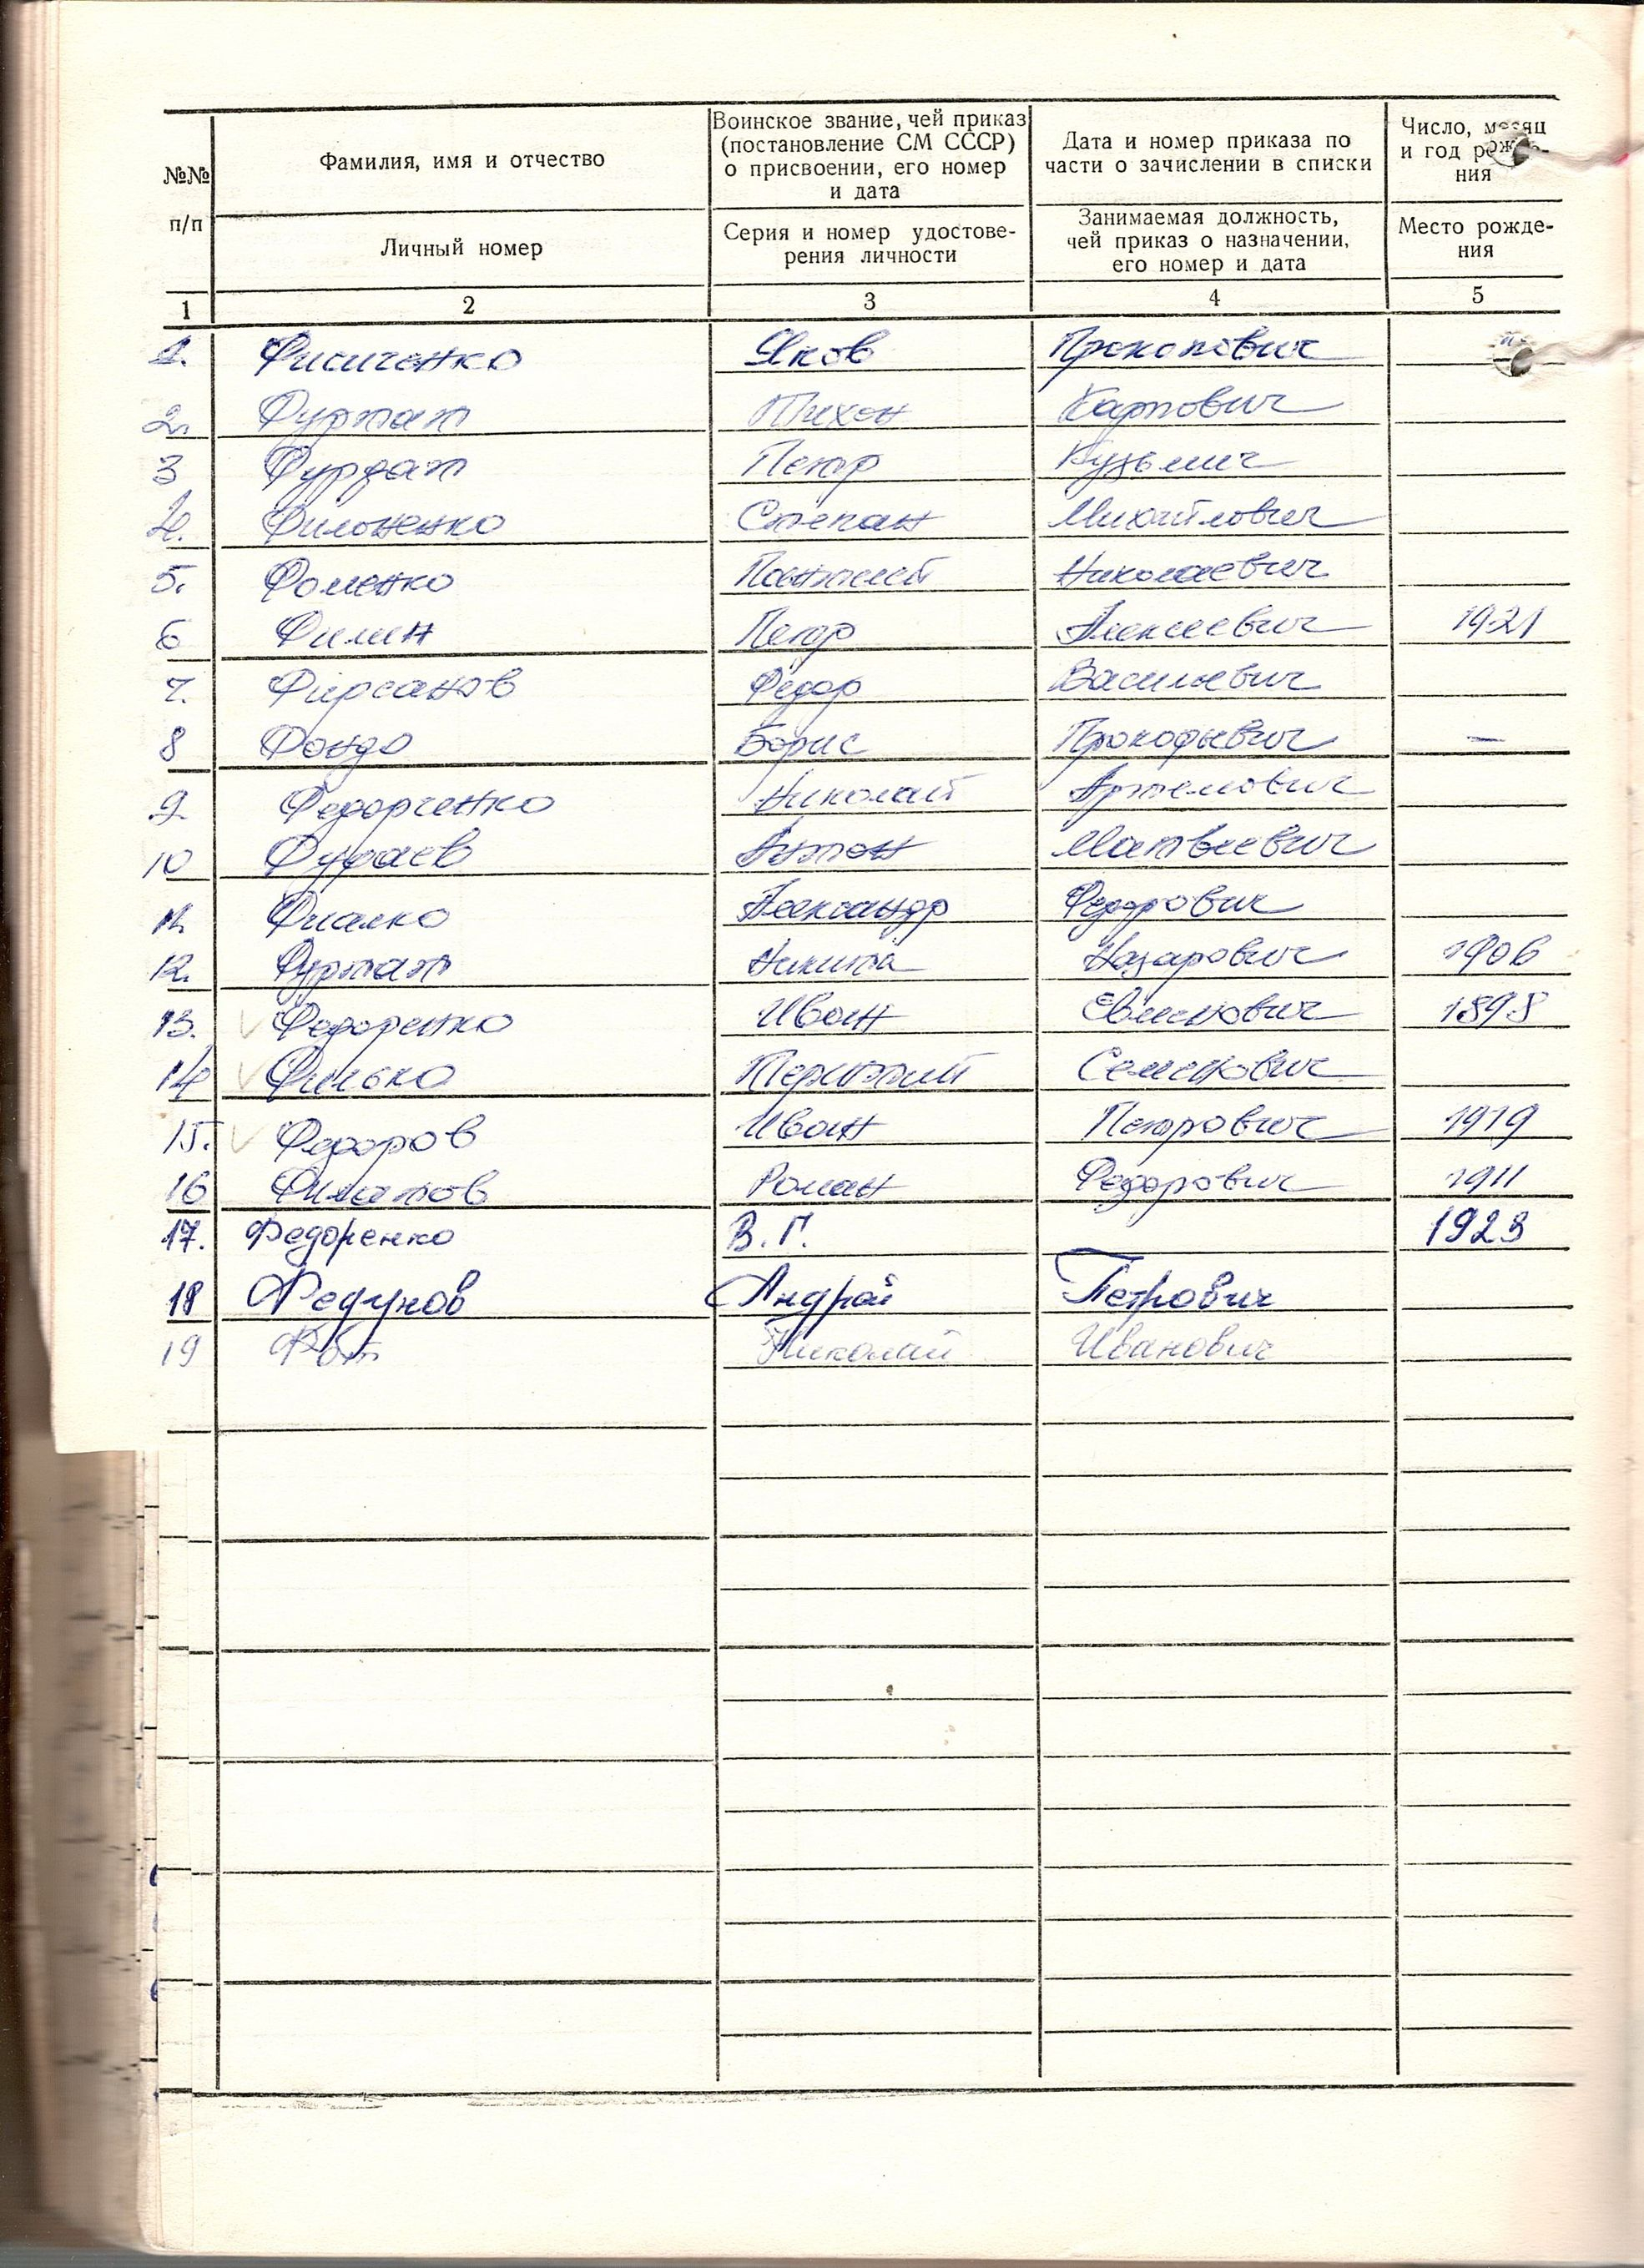 №№ п/п
Фамилия, имя и отчество
Личный номер
Воинское звание, чей приказ
(постановление СМ СССР)
о присвоении, его номер
и дата
Серия и номер удостове-
рения личности
Дата и номер приказа по
части о зачислении в списки
Занимаемая должность,
чей приказ о назначении,
его номер и дата
Число, месяц
и год рожде-
ния
Место рожде-
ния
1 2 3 4 5
1. Фисиченко Яков Прокопович
2. Фурман Тихон Карпович
3 Петр Кузьмич
4. Филоненко Степан Михайлович
5. Фоменко Пантелей Николаевич
6 Филин Петр Алексеевич 1921
7. Фирсанов Федор Васильевич
8 Фонда Борис Прокофьевич —
9. Федорченко Николай Артемович
10 Фураев Антон Матвеевич
11. Фиалко Александр Федорович
12. Фурман Никита Назарович 1906
13. Федоренко Иван 1898
14 Филько Терентий Семенович
15. Федоров Иван Петрович 1919
16 Филатов Роман Федорович 1911
17. Федоренко В. Г. 1923
18 Федунов Андрей Петрович
19 Николай Иванович